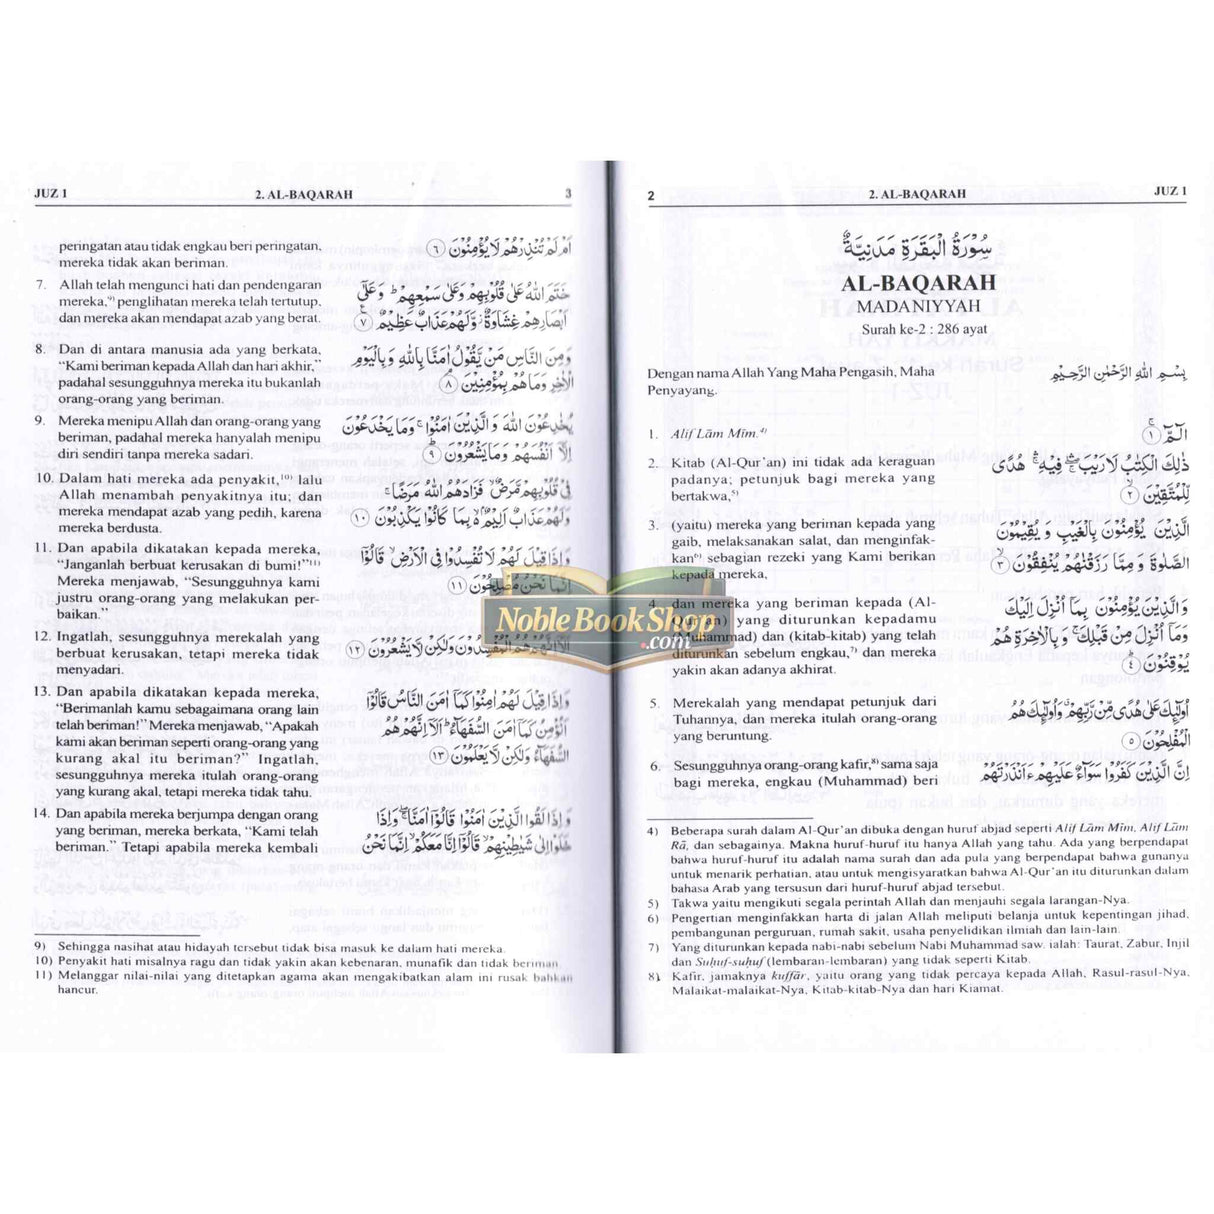 2
2. AL-BAQARAH
JUZ 1
سُوْرَةُ الْبَقَرَةِ مَدَنِيَّةٌ
AL-BAQARAH
MADANIYYAH
Surah ke-2 : 286 ayat
Dengan nama Allah Yang Maha Pengasih, Maha
Penyayang.
بِسْمِ اللّٰهِ الرَّحْمٰنِ الرَّحِيْمِ
1. Alif Lām Mīm.⁴⁾
الۤمّۤ ۚ ۝١
2. Kitab (Al-Qur’an) ini tidak ada keraguan
padanya; petunjuk bagi mereka yang
bertakwa,⁵⁾
ذٰلِكَ الْكِتٰبُ لَا رَيْبَ ۛ فِيْهِ ۛ هُدًى
لِّلْمُتَّقِيْنَ ۙ ۝٢
3. (yaitu) mereka yang beriman kepada yang
gaib, melaksanakan salat, dan menginfak-
kan⁶⁾ sebagian rezeki yang Kami berikan
kepada mereka,
الَّذِيْنَ يُؤْمِنُوْنَ بِالْغَيْبِ وَ يُقِيْمُوْنَ
الصَّلٰوةَ وَ مِمَّا رَزَقْنٰهُمْ يُنْفِقُوْنَ ۙ ۝٣
4. dan mereka yang beriman kepada (Al-
Qur’an) yang diturunkan kepadamu
(Muhammad) dan (kitab-kitab) yang telah
diturunkan sebelum engkau,⁷⁾ dan mereka
yakin akan adanya akhirat.
وَ الَّذِيْنَ يُؤْمِنُوْنَ بِمَآ اُنْزِلَ اِلَيْكَ
وَ مَآ اُنْزِلَ مِنْ قَبْلِكَ ۚ وَ بِالْاٰخِرَةِ هُمْ
يُوْقِنُوْنَ ۗ ۝٤
5. Merekalah yang mendapat petunjuk dari
Tuhannya, dan mereka itulah orang-orang
yang beruntung.
اُولٰۤىِٕكَ عَلٰى هُدًى مِّنْ رَّبِّهِمْ ۙ وَاُولٰۤىِٕكَ هُمُ
الْمُفْلِحُوْنَ ۝٥
6. Sesungguhnya orang-orang kafir,⁸⁾ sama saja
bagi mereka, engkau (Muhammad) beri
اِنَّ الَّذِيْنَ كَفَرُوْا سَوَاۤءٌ عَلَيْهِمْ ءَاَنْذَرْتَهُمْ
4) Beberapa surah dalam Al-Qur’an dibuka dengan huruf abjad seperti Alif Lām Mīm, Alif Lām
Rā, dan sebagainya. Makna huruf-huruf itu hanya Allah yang tahu. Ada yang berpendapat
bahwa huruf-huruf itu adalah nama surah dan ada pula yang berpendapat bahwa gunanya
untuk menarik perhatian, atau untuk mengisyaratkan bahwa Al-Qur’an itu diturunkan dalam
bahasa Arab yang tersusun dari huruf-huruf abjad tersebut.
5) Takwa yaitu mengikuti segala perintah Allah dan menjauhi segala larangan-Nya.
6) Pengertian menginfakkan harta di jalan Allah meliputi belanja untuk kepentingan jihad,
pembangunan perguruan, rumah sakit, usaha penyelidikan ilmiah dan lain-lain.
7) Yang diturunkan kepada nabi-nabi sebelum Nabi Muhammad saw. ialah: Taurat, Zabur, Injil
dan Suḥuf-suḥuf (lembaran-lembaran) yang tidak seperti Kitab.
8) Kafir, jamaknya kuffār, yaitu orang yang tidak percaya kepada Allah, Rasul-rasul-Nya,
Malaikat-malaikat-Nya, Kitab-kitab-Nya dan hari Kiamat.
JUZ 1
2. AL-BAQARAH
3
peringatan atau tidak engkau beri peringatan,
mereka tidak akan beriman.
اَمْ لَمْ تُنْذِرْهُمْ لَا يُؤْمِنُوْنَ ۝٦
7. Allah telah mengunci hati dan pendengaran
mereka,⁹⁾ penglihatan mereka telah tertutup,
dan mereka akan mendapat azab yang berat.
خَتَمَ اللّٰهُ عَلٰى قُلُوْبِهِمْ وَعَلٰى سَمْعِهِمْ ۗ وَعَلٰٓى
اَبْصَارِهِمْ غِشَاوَةٌ وَّلَهُمْ عَذَابٌ عَظِيْمٌ ۝٧
8. Dan di antara manusia ada yang berkata,
“Kami beriman kepada Allah dan hari akhir,”
padahal sesungguhnya mereka itu bukanlah
orang-orang yang beriman.
وَمِنَ النَّاسِ مَنْ يَّقُوْلُ اٰمَنَّا بِاللّٰهِ وَ بِالْيَوْمِ
الْاٰخِرِ وَمَا هُمْ بِمُؤْمِنِيْنَ ۘ ۝٨
9. Mereka menipu Allah dan orang-orang yang
beriman, padahal mereka hanyalah menipu
diri sendiri tanpa mereka sadari.
يُخٰدِعُوْنَ اللّٰهَ وَ الَّذِيْنَ اٰمَنُوْا ۚ وَمَا يَخْدَعُوْنَ
اِلَّآ اَنْفُسَهُمْ وَمَا يَشْعُرُوْنَ ۗ ۝٩
10. Dalam hati mereka ada penyakit,¹⁰⁾ lalu
Allah menambah penyakitnya itu; dan
mereka mendapat azab yang pedih, karena
mereka berdusta.
فِيْ قُلُوْبِهِمْ مَّرَضٌ ۙ فَزَادَهُمُ اللّٰهُ مَرَضًا ۚ
وَلَهُمْ عَذَابٌ اَلِيْمٌ ۙ بِمَا كَانُوْا يَكْذِبُوْنَ ۝١٠
11. Dan apabila dikatakan kepada mereka,
“Janganlah berbuat kerusakan di bumi!”¹¹⁾
Mereka menjawab, “Sesungguhnya kami
justru orang-orang yang melakukan per-
baikan.”
وَاِذَا قِيْلَ لَهُمْ لَا تُفْسِدُوْا فِى الْاَرْضِ ۙ قَالُوْٓا
اِنَّمَا نَحْنُ مُصْلِحُوْنَ ۝١١
12. Ingatlah, sesungguhnya merekalah yang
berbuat kerusakan, tetapi mereka tidak
menyadari.
اَلَآ اِنَّهُمْ هُمُ الْمُفْسِدُوْنَ وَلٰكِنْ لَّا يَشْعُرُوْنَ ۝١٢
13. Dan apabila dikatakan kepada mereka,
“Berimanlah kamu sebagaimana orang lain
telah beriman!” Mereka menjawab, “Apakah
kami akan beriman seperti orang-orang yang
kurang akal itu beriman?” Ingatlah,
sesungguhnya mereka itulah orang-orang
yang kurang akal, tetapi mereka tidak tahu.
وَاِذَا قِيْلَ لَهُمْ اٰمِنُوْا كَمَآ اٰمَنَ النَّاسُ قَالُوْٓا
اَنُؤْمِنُ كَمَآ اٰمَنَ السُّفَهَاۤءُ ۗ اَلَآ اِنَّهُمْ هُمُ
السُّفَهَاۤءُ وَلٰكِنْ لَّا يَعْلَمُوْنَ ۝١٣
14. Dan apabila mereka berjumpa dengan orang
yang beriman, mereka berkata, “Kami telah
beriman.” Tetapi apabila mereka kembali
وَ اِذَا لَقُوا الَّذِيْنَ اٰمَنُوْا قَالُوْٓا اٰمَنَّا ۚ وَاِذَا
خَلَوْا اِلٰى شَيٰطِيْنِهِمْ ۙ قَالُوْٓا اِنَّا مَعَكُمْ ۙ اِنَّمَا نَحْنُ
9) Sehingga nasihat atau hidayah tersebut tidak bisa masuk ke dalam hati mereka.
10) Penyakit hati misalnya ragu dan tidak yakin akan kebenaran, munafik dan tidak beriman.
11) Melanggar nilai-nilai yang ditetapkan agama akan mengakibatkan alam ini rusak bahkan
hancur.
NobleBookShop
.com